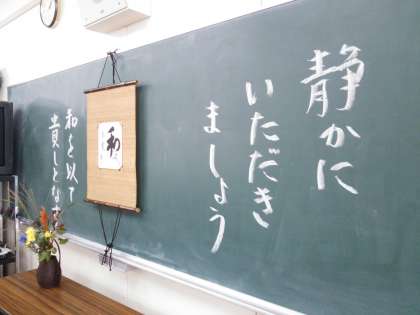 静かに
いただき
ましょう
和
和を以て
貴しとな